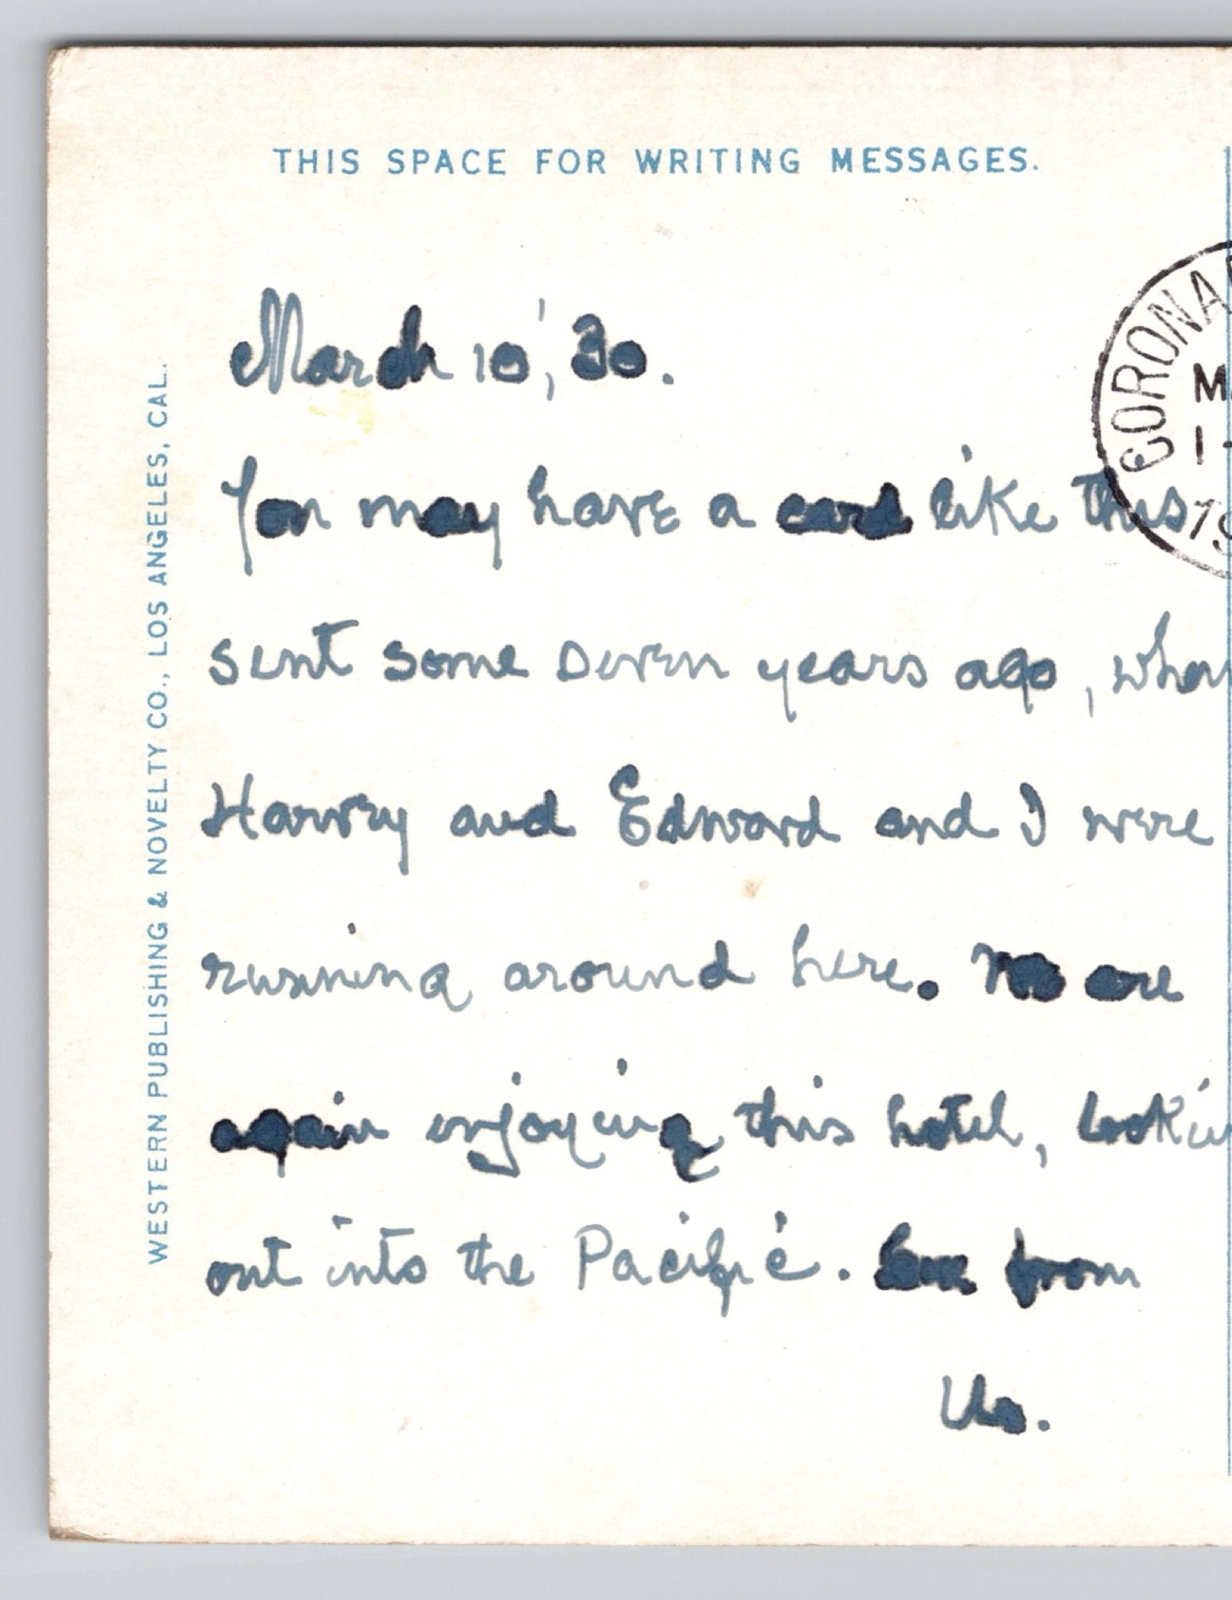 THIS SPACE FOR WRITING MESSAGES.
CORONA
M
1-
19
March 10, '30.
You may have a card like this
sent some seven years ago, when
Harvey and Edward and I were
running around here. We are
again enjoying this hotel, lookin
out into the Pacific. from
Us.
WESTERN PUBLISHING & NOVELTY CO., LOS ANGELES, CAL.